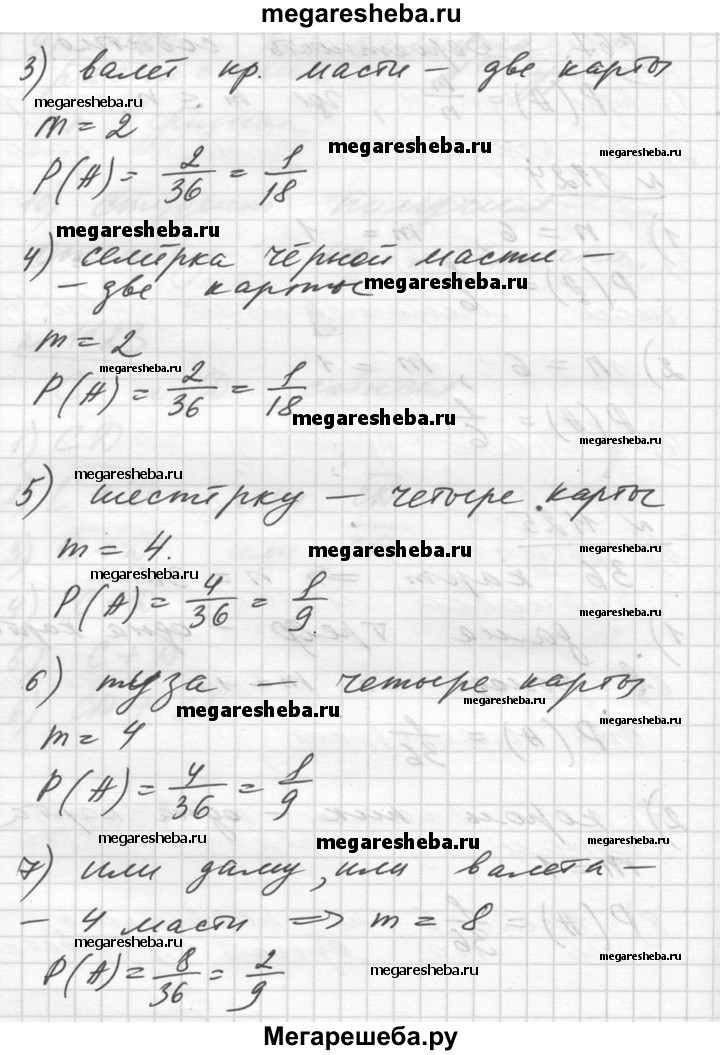 megaresheba.ru
3) валет кр. масти – две карты
megaresheba.ru megaresheba.ru
m = 2
megaresheba.ru
megaresheba.ru
P(A) = 2/36 = 1/18
megaresheba.ru
4) семёрка чёрной масти –
– две карты
megaresheba.ru
m = 2
megaresheba.ru megaresheba.ru
P(A) = 2/36 = 1/18
megaresheba.ru
megaresheba.ru
megaresheba.ru
5) шестёрку – четыре карты
megaresheba.ru
m = 4.
megaresheba.ru
megaresheba.ru
P(A) = 4/36 = 1/9.
megaresheba.ru
6) туза – четыре карты
megaresheba.ru megaresheba.ru
m = 4
megaresheba.ru
P(A) = 4/36 = 1/9
megaresheba.ru megaresheba.ru megaresheba.ru
7) или даму, или валета –
– 4 масти => m = 8
megaresheba.ru
P(A) = 8/36 = 2/9
megaresheba.ru megaresheba.ru
Мегарешеба.ру